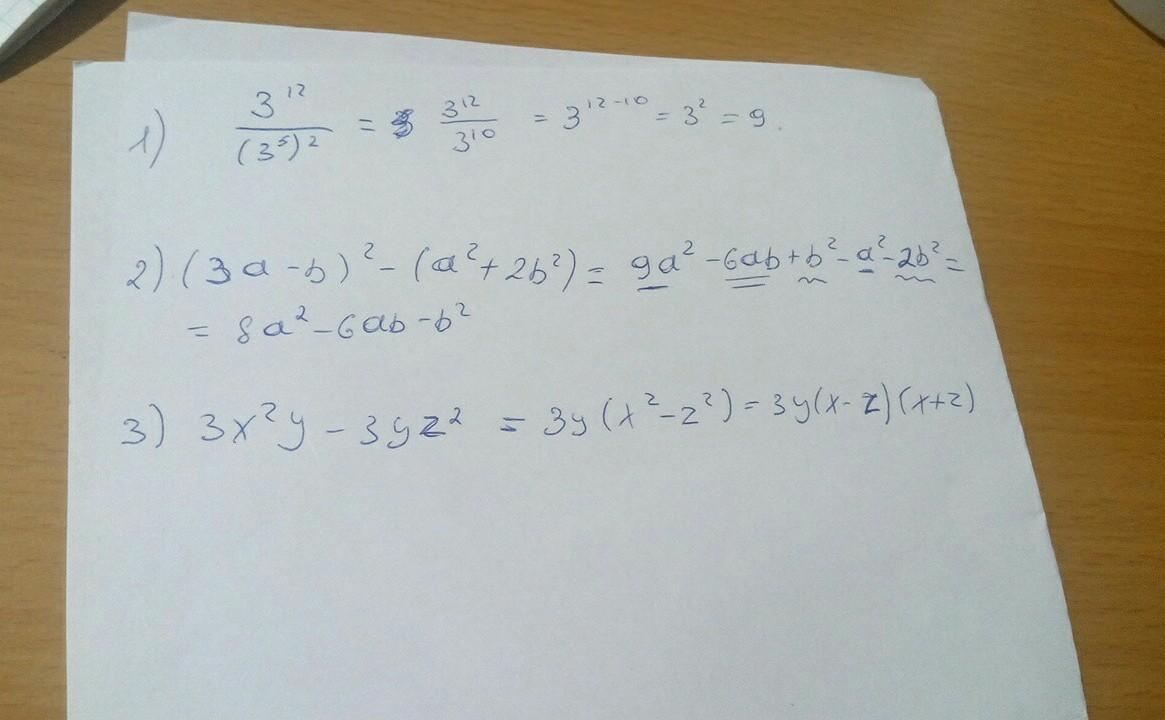 1) 3¹²/(3⁵)² = 3¹²/3¹⁰ = 3¹²⁻¹⁰ = 3² = 9.
2) (3a - b)² - (a² + 2b²) = 9a² - 6ab + b² - a² - 2b² =
= 8a² - 6ab - b²
3) 3x²y - 3yz² = 3y(x² - z²) = 3y(x - z)(x + z)